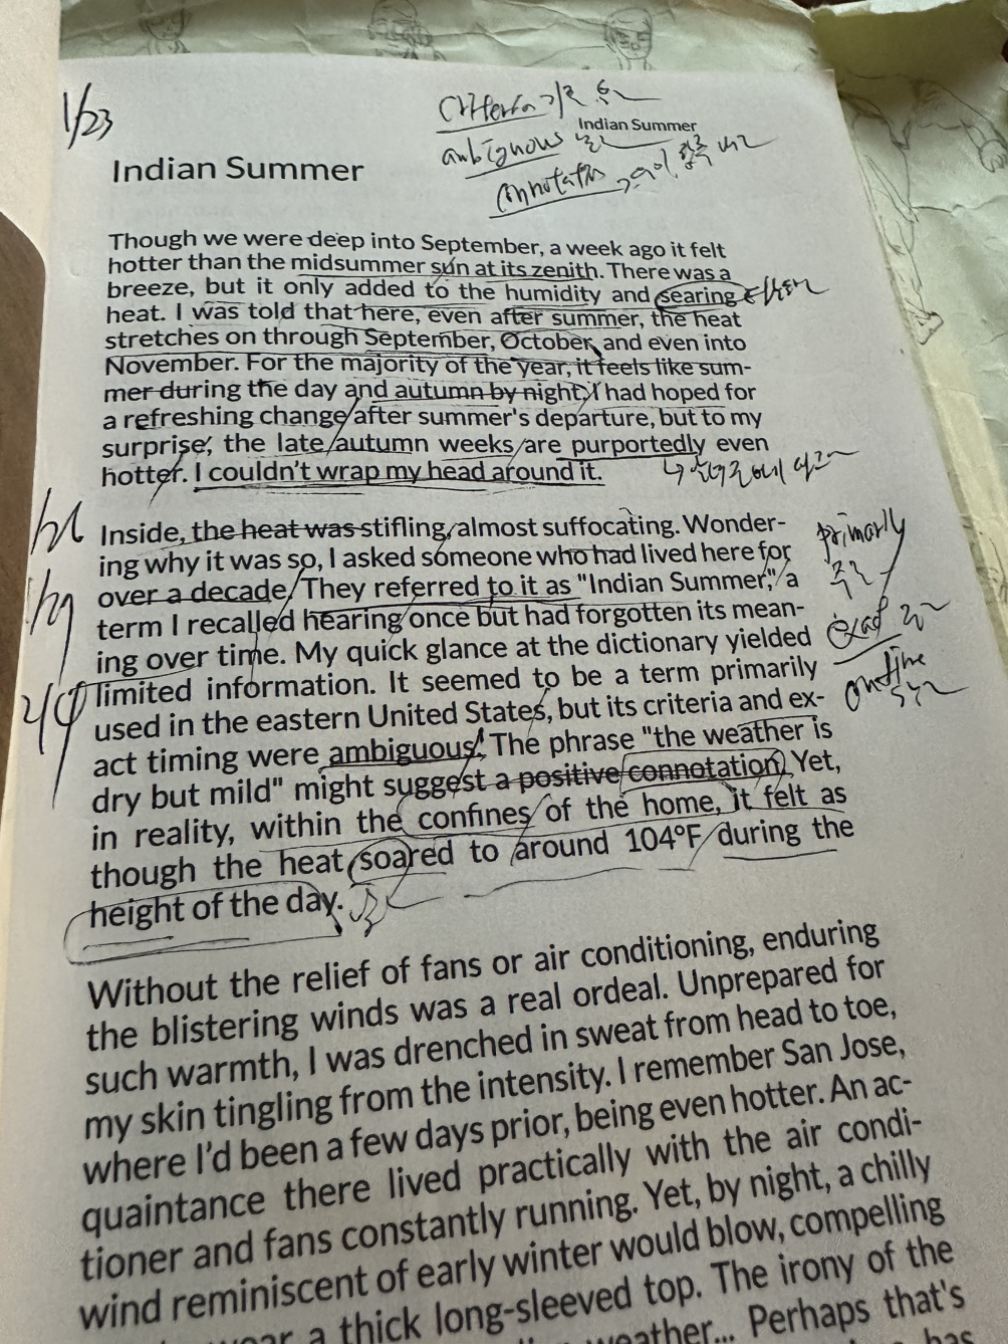 1/23
criteria 기준
ambiguous
Indian Summer
connotation
Indian Summer
Though we were deep into September, a week ago it felt
hotter than the midsummer sun at its zenith. There was a
breeze, but it only added to the humidity and searing
heat. I was told that here, even after summer, the heat
stretches on through September, October, and even into
November. For the majority of the year, it feels like sum-
mer during the day and autumn by night. I had hoped for
a refreshing change after summer's departure, but to my
surprise, the late autumn weeks are purportedly even
hotter. I couldn't wrap my head around it.
Inside, the heat was stifling, almost suffocating. Wonder-
ing why it was so, I asked someone who had lived here for
over a decade. They referred to it as "Indian Summer," a
term I recalled hearing once but had forgotten its mean-
ing over time. My quick glance at the dictionary yielded
limited information. It seemed to be a term primarily
used in the eastern United States, but its criteria and ex-
act timing were ambiguous. The phrase "the weather is
dry but mild" might suggest a positive connotation. Yet,
in reality, within the confines of the home, it felt as
though the heat soared to around 104°F during the
height of the day.
primarily
Without the relief of fans or air conditioning, enduring
the blistering winds was a real ordeal. Unprepared for
such warmth, I was drenched in sweat from head to toe,
my skin tingling from the intensity. I remember San Jose,
where I'd been a few days prior, being even hotter. An ac-
quaintance there lived practically with the air condi-
tioner and fans constantly running. Yet, by night, a chilly
wind reminiscent of early winter would blow, compelling
a thick long-sleeved top. The irony of the
weather... Perhaps that's
has